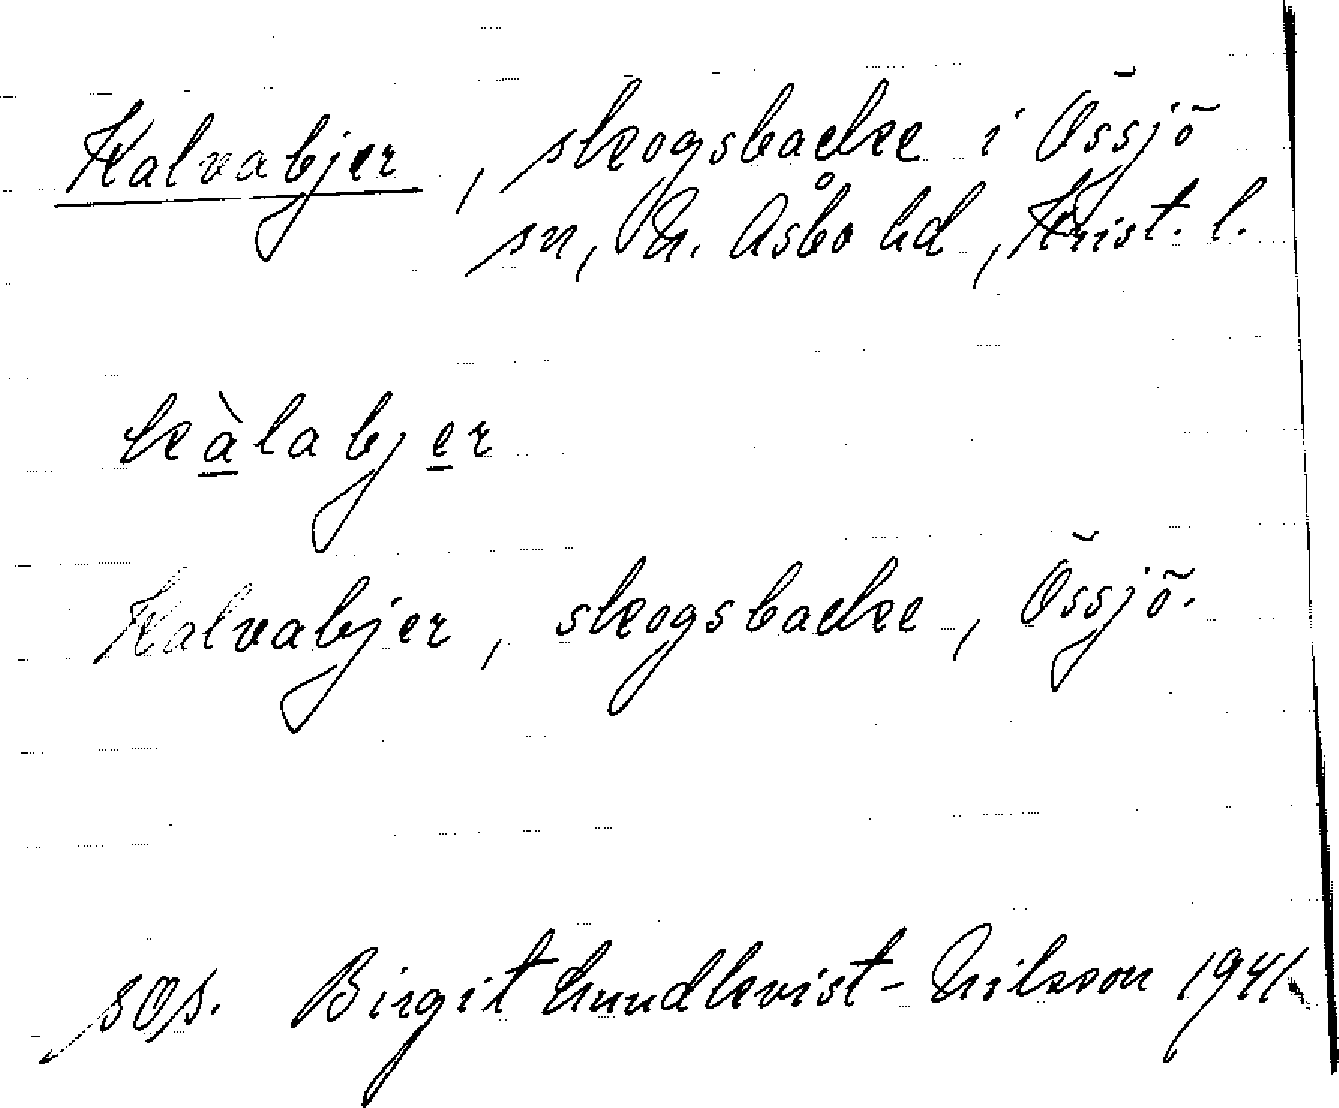 Kalvabjer, skogsbacke i Össjö
sn, N. Åsbo hd, Krist. l.
kàlabjer
Kalvabjer, skogsbacke, Össjö.
sos. Birgit Lundkvist-Nilsson 1941